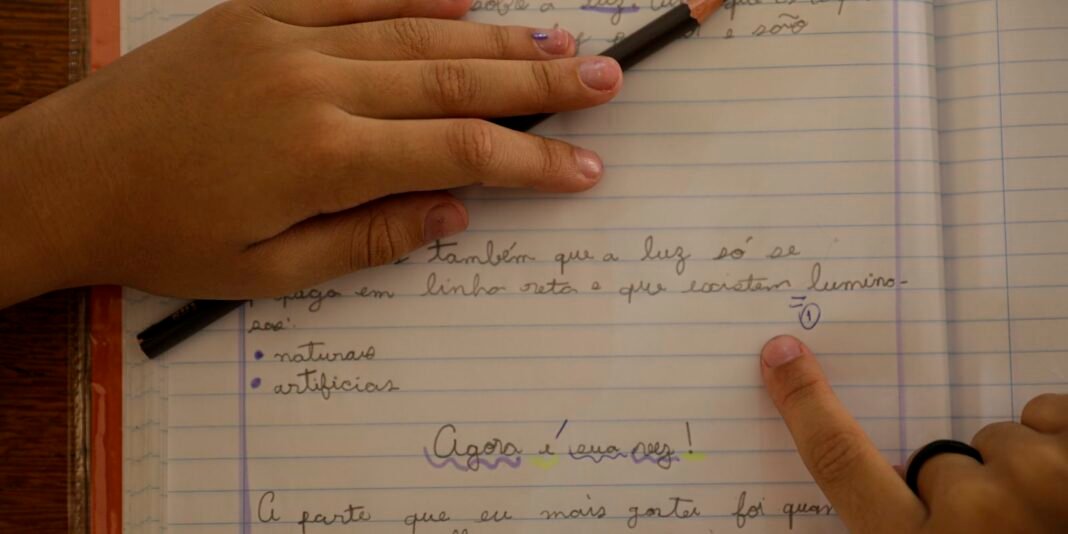 sobre a luz. que
e são
também que a luz só se
paga em linha reta e que existem lumino-
sos:
=
1
• naturais
• artificias
Agora é sua vez!
A parte que eu mais gostei foi quan